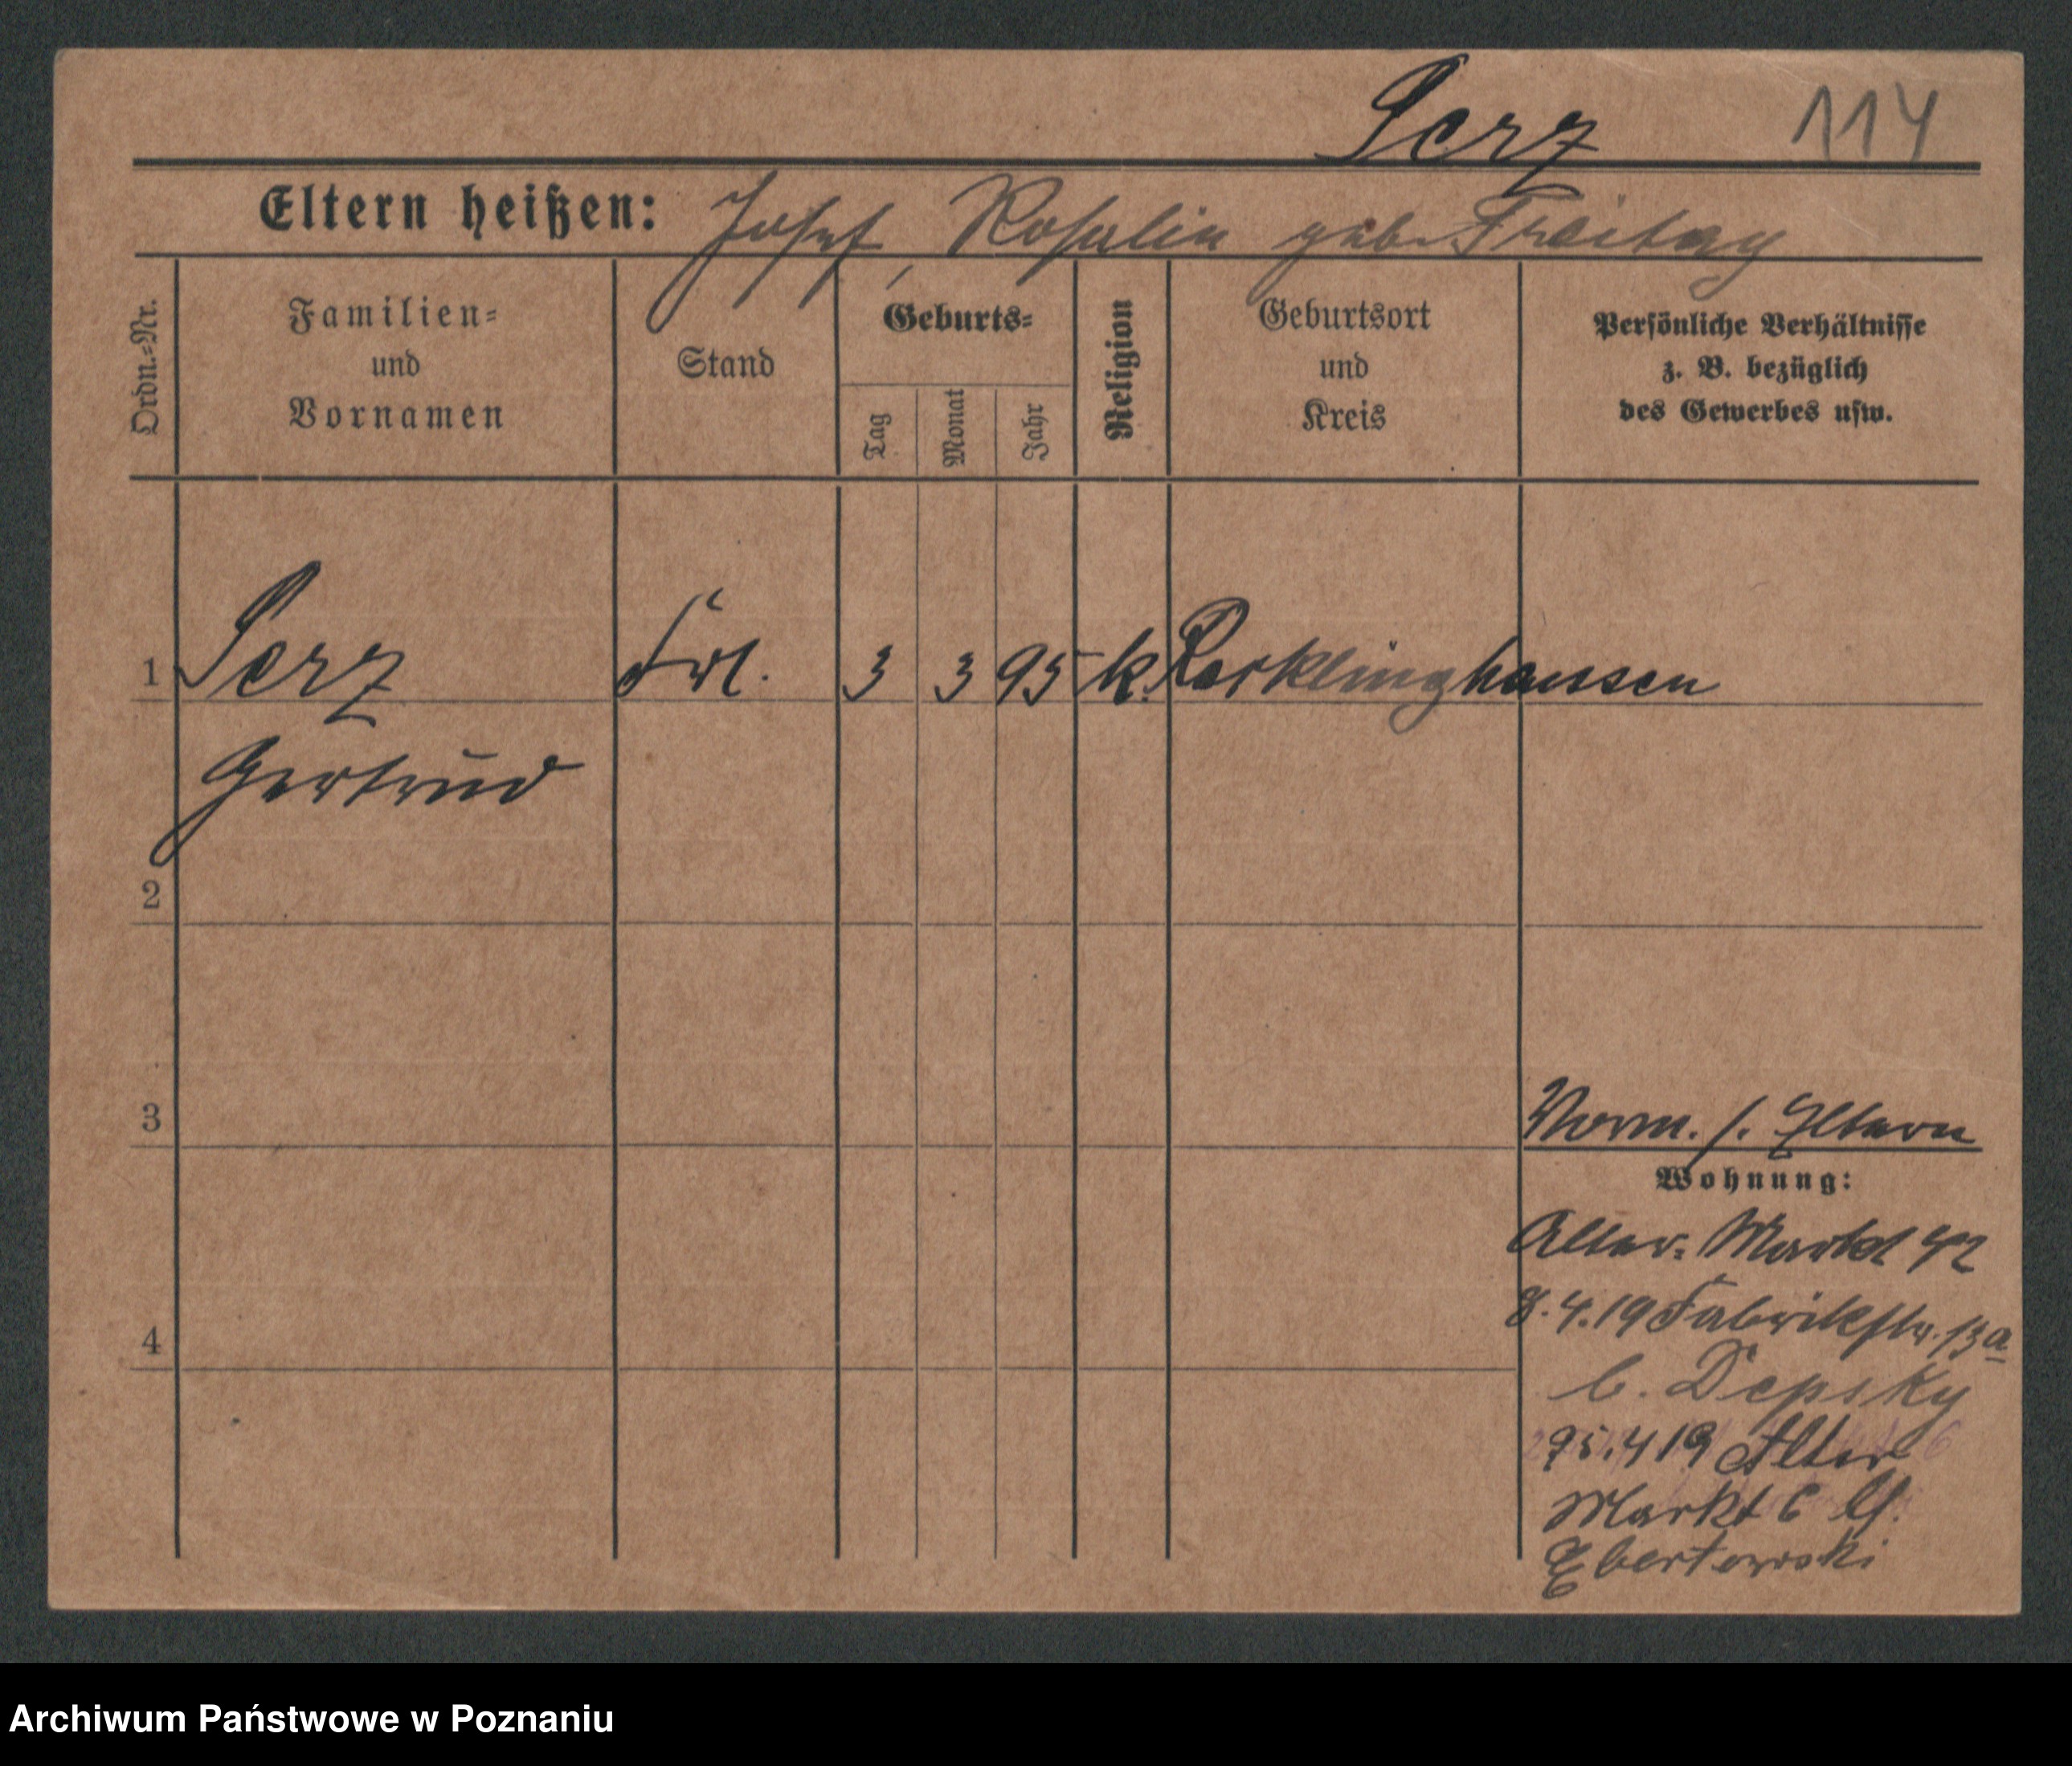 Serz 114
Eltern heißen: Josef, Rosalia geb. Freitag
Ordn.=Nr.
Familien=
und
Vornamen
Stand
Geburts=
Tag
Monat
Jahr
Religion
Geburtsort
und
Kreis
Persönliche Verhältnisse
z. B. bezüglich
des Gewerbes usw.
1 Serz Frl. 3 3 95 k. Recklinghausen
Gertrud
2
3
Vorm. s. Eltern
Wohnung:
Alter Markt 42
8.4.19 Fabrikstr. 13a
4
b. Depsky
25.4 19 Alter
Markt 6 bf.
Ebertowski
Archiwum Państwowe w Poznaniu